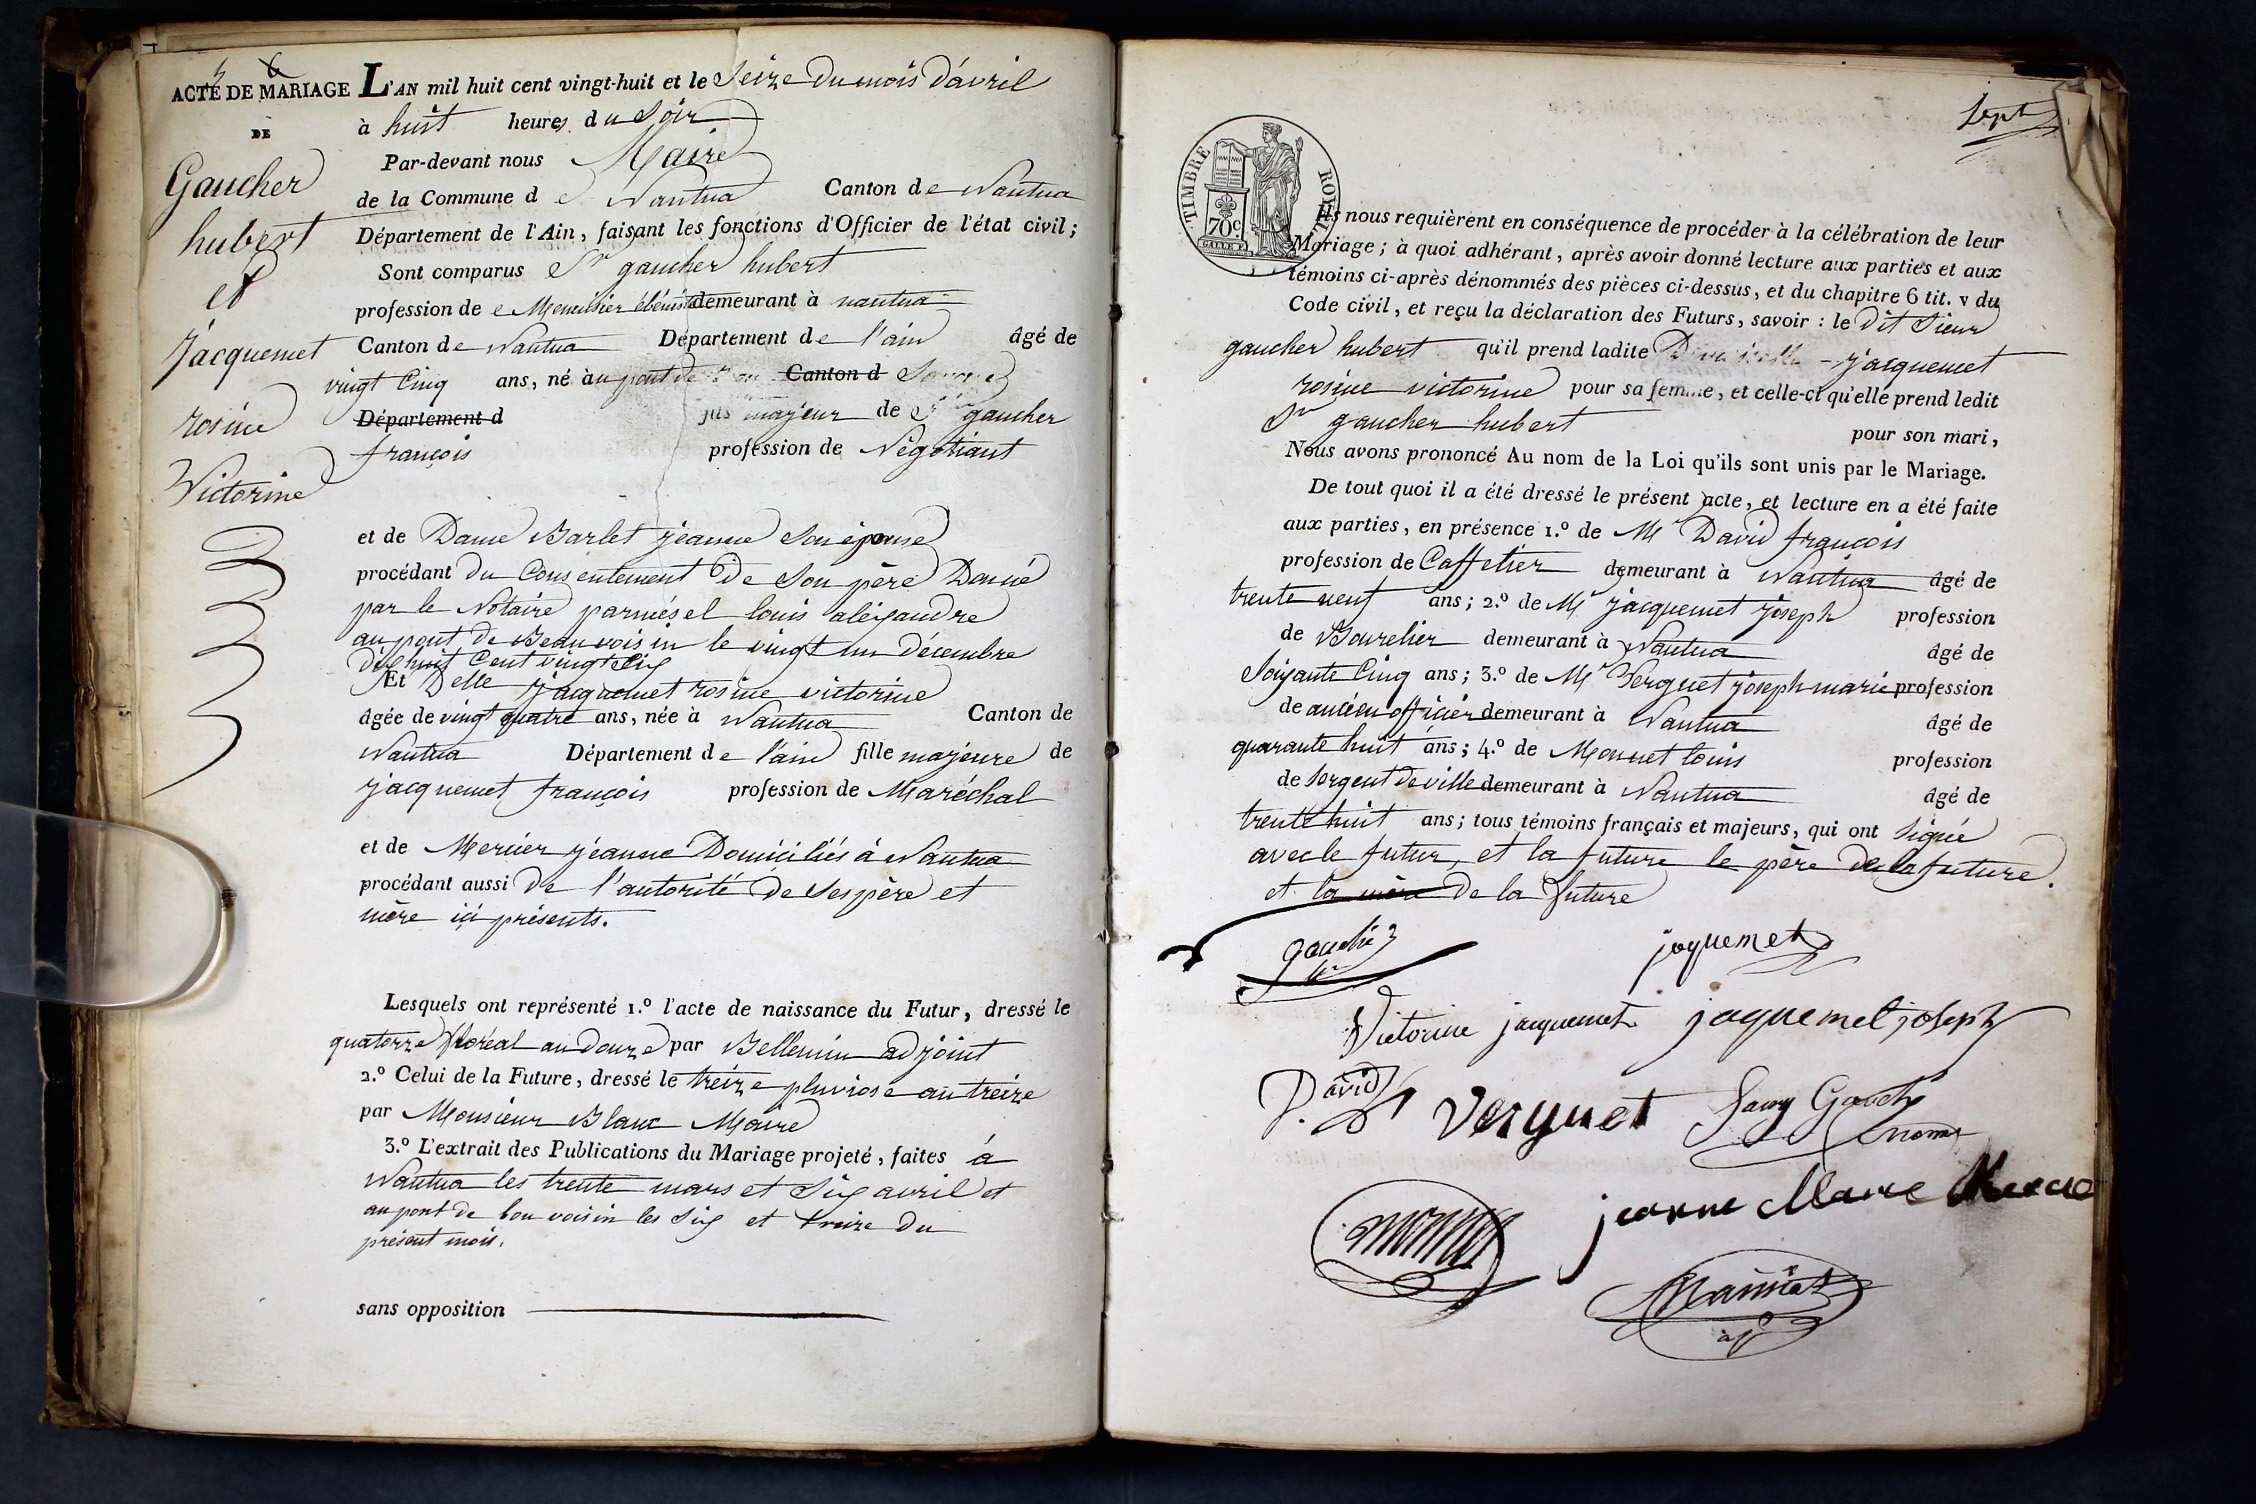 ACTE DE MARIAGE
DE
Gaucher
hubert
et
Jacquemet
rosine
Victorine
L'AN mil huit cent vingt-huit et le Seize du mois d'avril
à huit heures du Soir
Par-devant nous Maire
de la Commune de Nantua Canton de Nantua
Département de l'Ain, faisant les fonctions d'Officier de l'état civil;
Sont comparus Sr gaucher hubert
profession de Menuisier ébéniste demeurant à nantua
Canton de Nantua Département de l'ain âgé de
vingt Cinq ans, né au pont de Canton d
Département d fils majeur de Sr gaucher
françois profession de Négotiant
et de Dame Barlet jeanne Son épouse
procédant du Consentement de Son père Donné
par le Notaire louis aléxandre
au pont de Beauvoisin le vingt un décembre
dix huit Cent vingt Six
Et Delle Jacquemet rosine victorine
âgée de vingt quatre ans, née à Nantua Canton de
Nantua Département de l'ain fille majeure de
jacquemet françois profession de Maréchal
et de Mercier jeanne Domiciliés à Nantua
procédant aussi de l'autorité de Ses père et
mère içi présents.
Lesquels ont représenté 1.º l'acte de naissance du Futur, dressé le
quatorze floréal an douze par Bellemin adjoint
2.º Celui de la Future, dressé le treize pluviose an treize
par Monsieur Blanc Maire
3.º L'extrait des Publications du Mariage projeté, faites à
Nantua les trente mars et Six avril et
au pont de bon voisin les Six et treize du
présent mois.
sans opposition
Sept
TIMBRE ROYAL
70c.
Ils nous requièrent en conséquence de procéder à la célébration de leur
Mariage; à quoi adhérant, après avoir donné lecture aux parties et aux
témoins ci-après dénommés des pièces ci-dessus, et du chapitre 6 tit. v du
Code civil, et reçu la déclaration des Futurs, savoir : le dit Sieur
gaucher hubert qu'il prend ladite Demoiselle jacquemet
rosine victorine pour sa femme, et celle-ci qu'elle prend ledit
Sr gaucher hubert pour son mari,
Nous avons prononcé Au nom de la Loi qu'ils sont unis par le Mariage.
De tout quoi il a été dressé le présent acte, et lecture en a été faite
aux parties, en présence 1.º de Mr David françois
profession de Caffetier demeurant à Nantua âgé de
trente neuf ans; 2.º de Mr jacquemet joseph profession
de Bourelier demeurant à Nantua âgé de
Soixante Cinq ans; 3.º de Mr Verguet joseph marie profession
de ancien officier demeurant à Nantua âgé de
quarante huit ans; 4.º de Monnet louis profession
de Sergent de ville demeurant à Nantua âgé de
trente huit ans; tous témoins français et majeurs, qui ont Signé
avec le futur, et la future le père de la future.
et la mère de la future
gauché
jaquemet
Victorine jacquemet
jaquemet joseph
David
Verguet
jeanne Marie